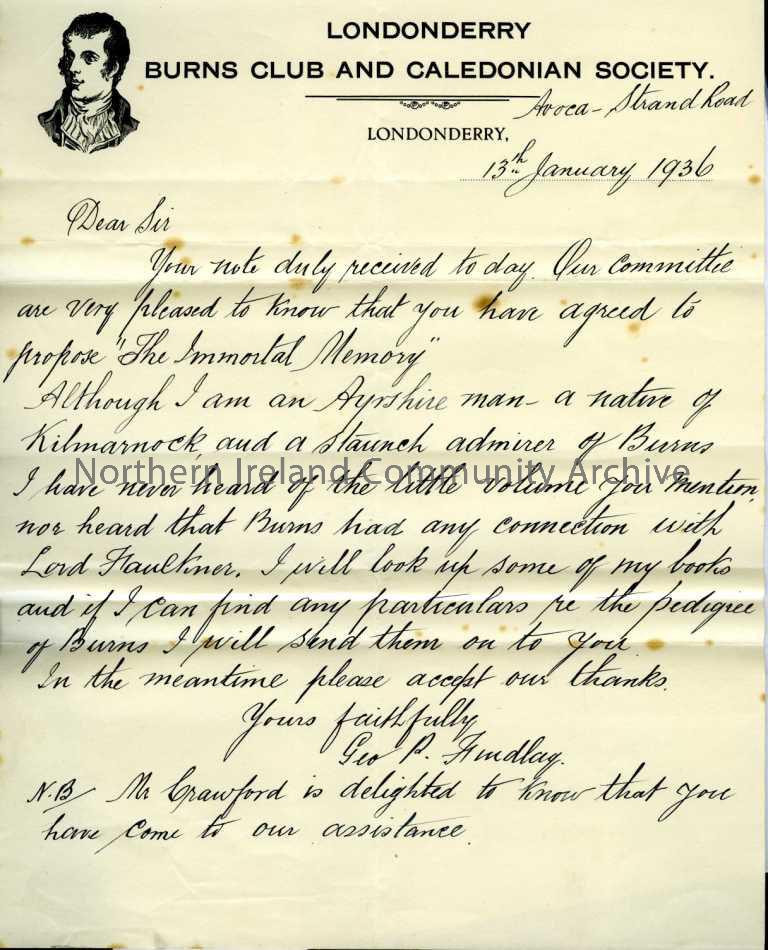 LONDONDERRY
BURNS CLUB AND CALEDONIAN SOCIETY.
Avoca - Strand Road
LONDONDERRY,
13th January 1936
Dear Sir
Your note duly received to day. Our Committee
are very pleased to know that you have agreed to
propose "The Immortal Memory"
Although I am an Ayrshire man - a native of
Kilmarnock, and a staunch admirer of Burns
Northern Ireland Community Archive
I have never heard of the little volume you mention,
nor heard that Burns had any connection with
Lord Faulkner. I will look up some of my books
and if I can find any particulars re the pedigree
of Burns I will send them on to you.
In the meantime please accept our thanks.
Yours faithfully
Geo P. Findlay.
N.B/ Mr Crawford is delighted to know that you
have come to our assistance.